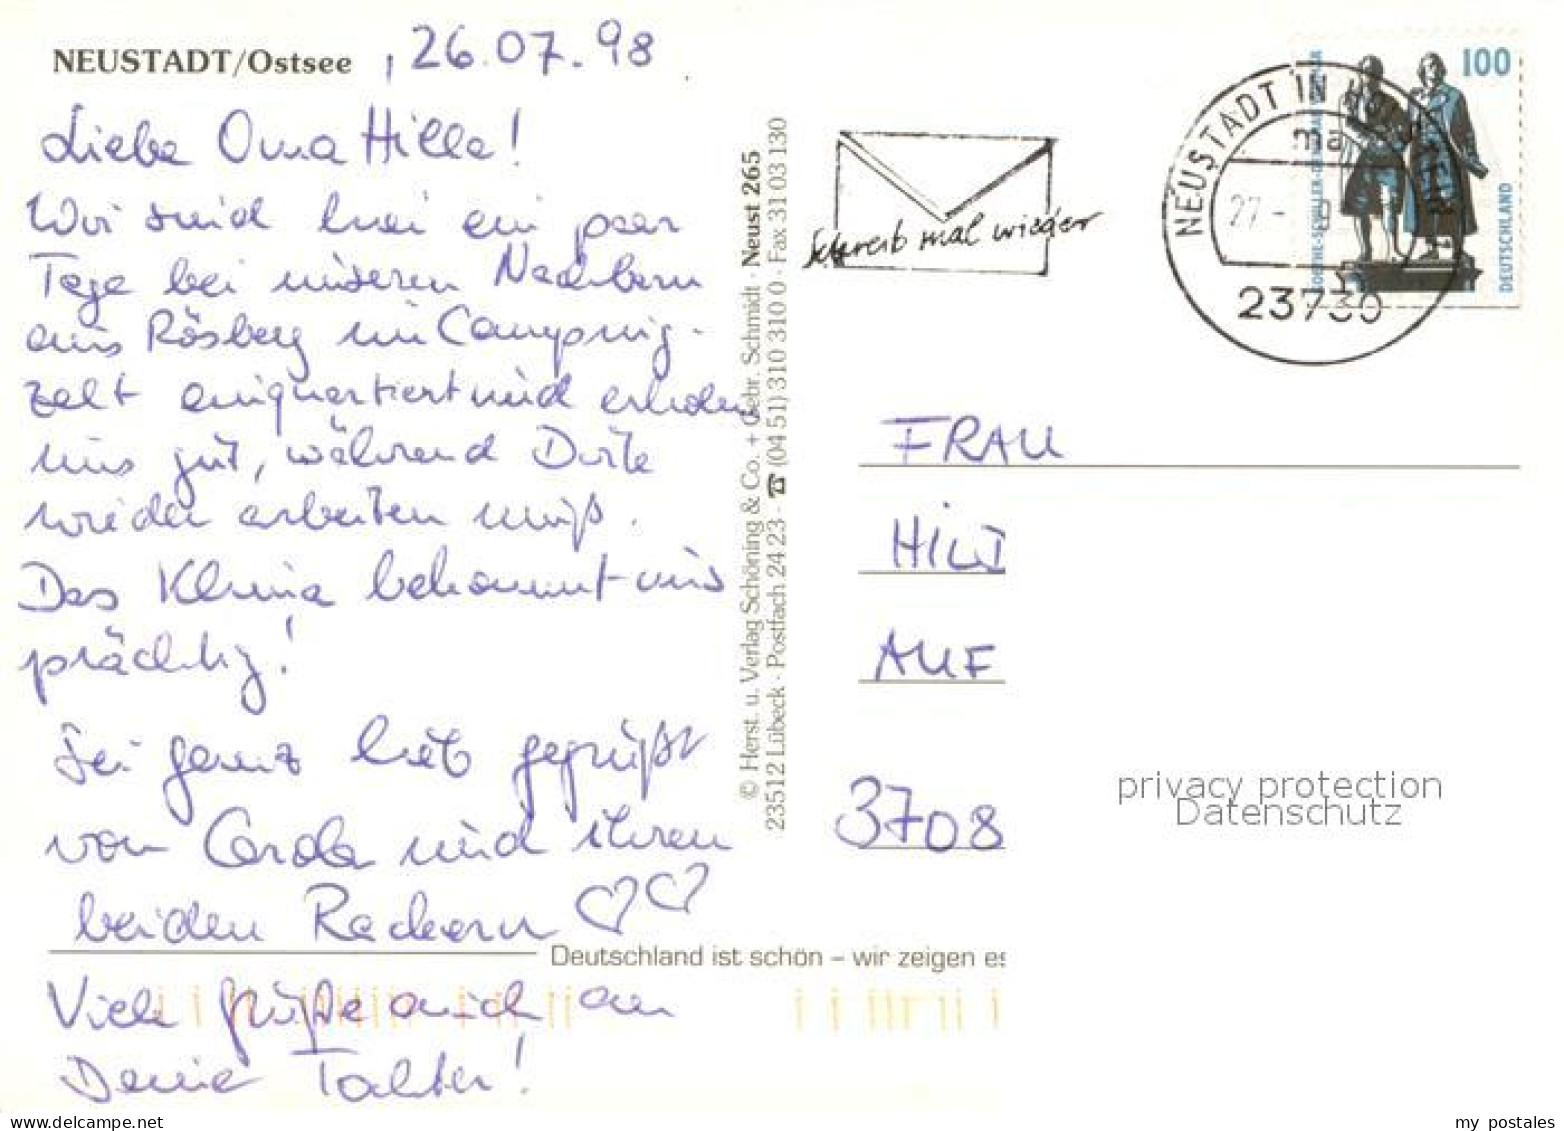 NEUSTADT/Ostsee , 26.07.98
Liebe Oma Hille!
Wir sind hier ein paar
Tage bei unseren Nachbarn
aus Rösberg im Camping-
zelt einquartiert und erholen
uns gut, während Dörte
wieder arbeiten muß.
Das Klima bekommt uns
prächtig!
Sei ganz lieb gegrüßt
von Carola und ihren
beiden Rackern ♡♡
Viele Grüße auch an
Deine Tochter!
© Herst. u. Verlag Schöning & Co. + Gebr. Schmidt · Neust 265
23512 Lübeck · Postfach 24 23 · ☎ (04 51) 310 310 0 · Fax 31 03 130
Deutschland ist schön – wir zeigen es
Schreib mal wieder
NEUSTADT IN
27.
23730
100
DEUTSCHLAND
FRAU
AUF
3708
privacy protection
Datenschutz
my postales